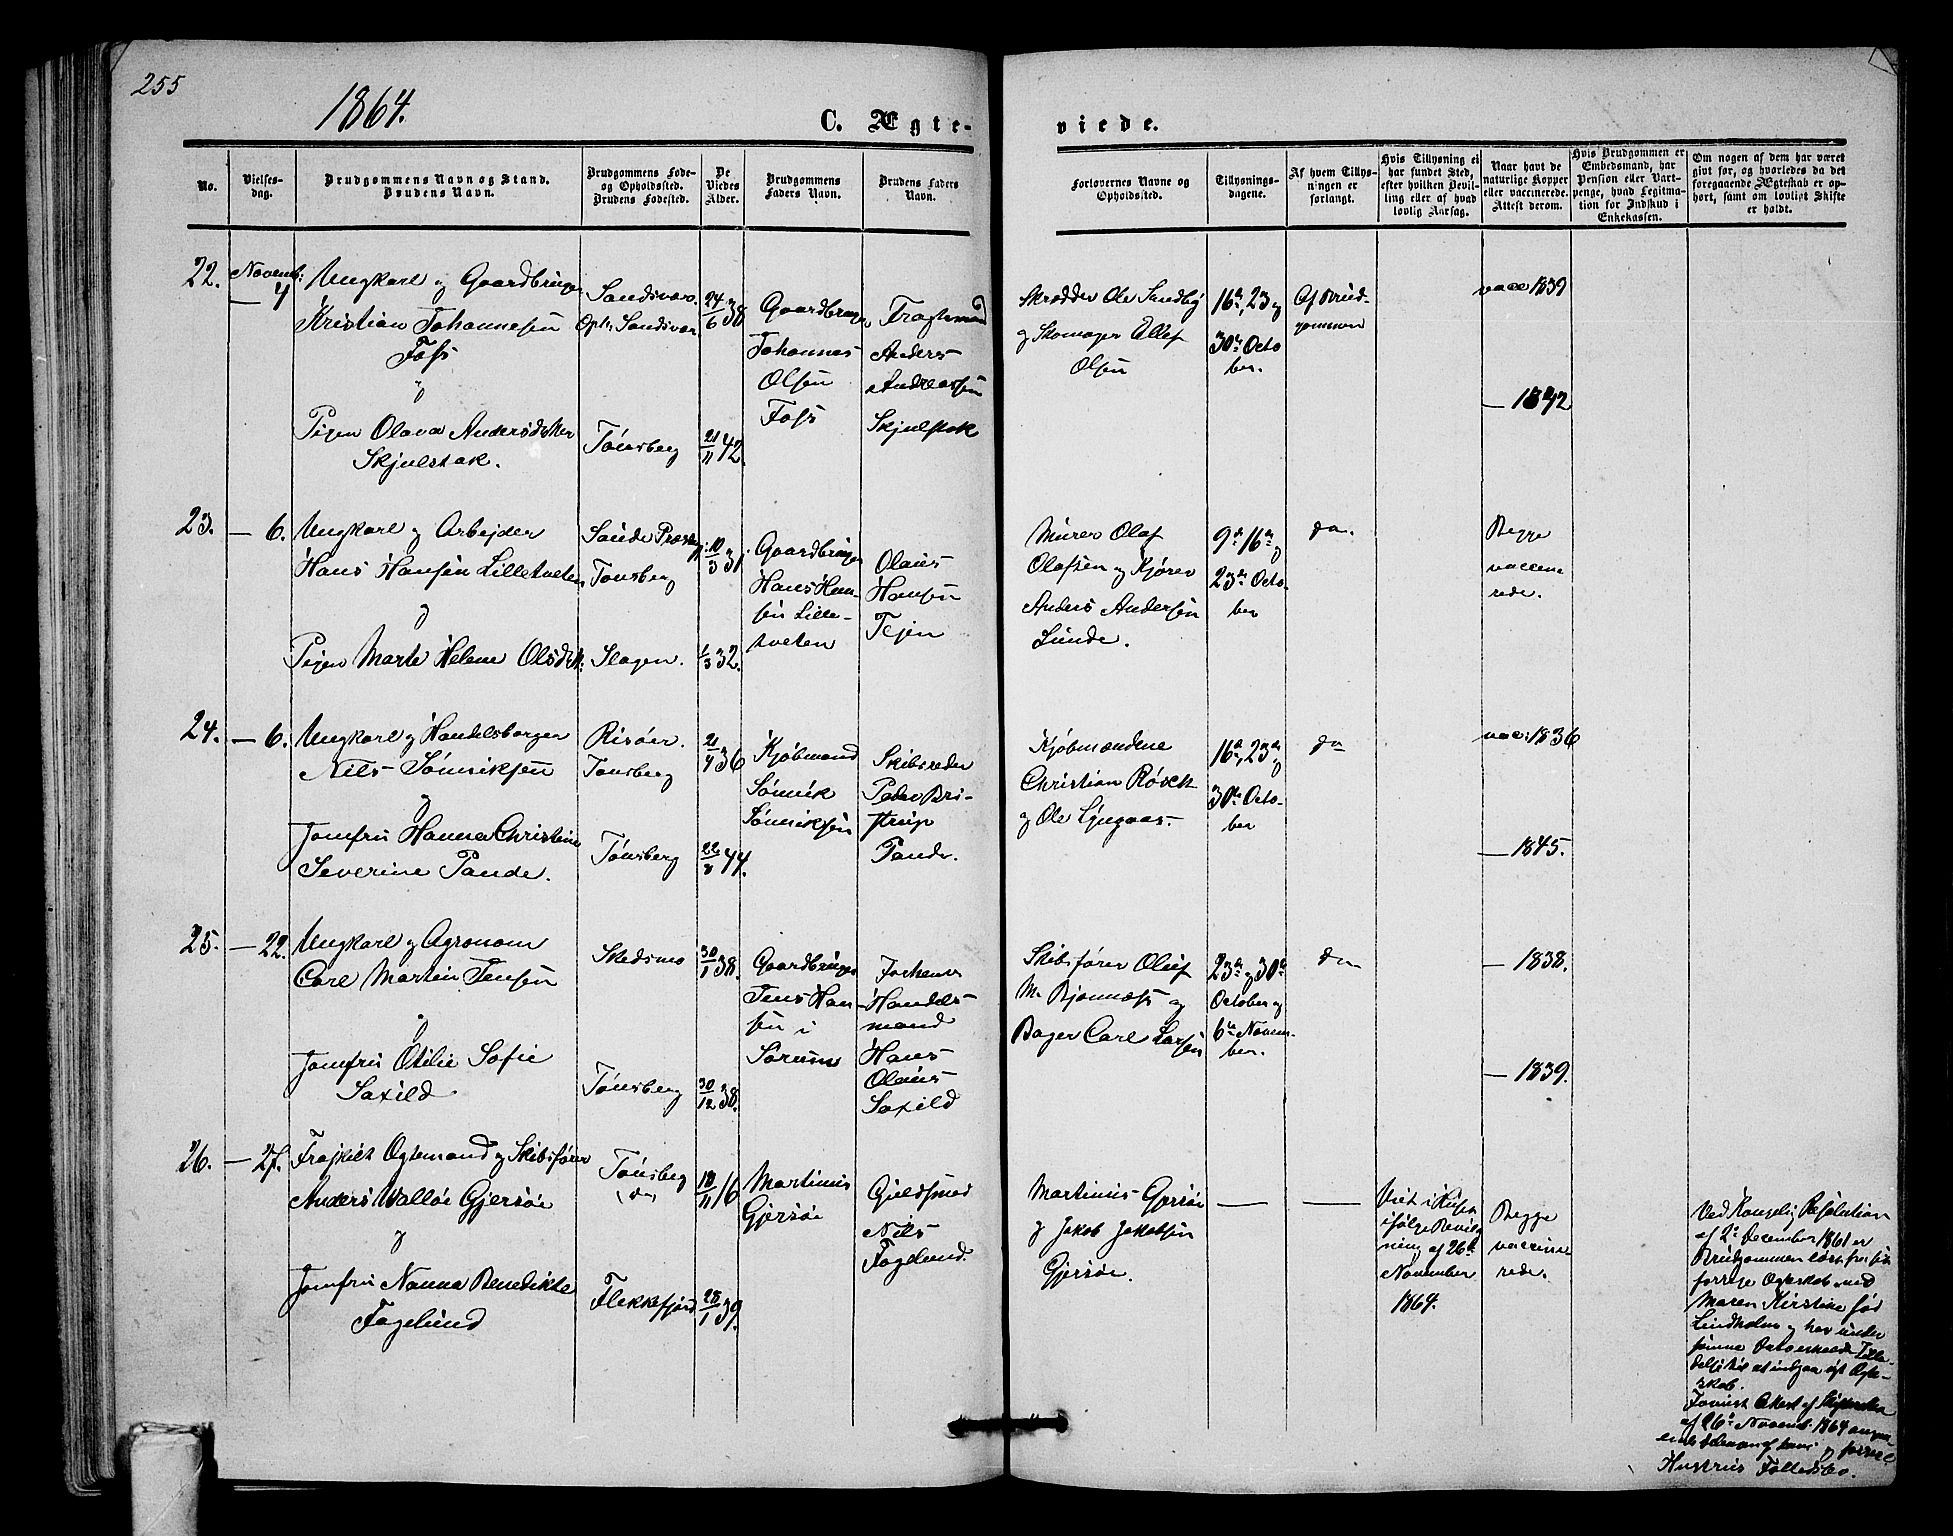 255
1864.
C. Ægte-
viede.
No.
Vielses-
dag.
Brudgommens Navn og Stand.
Brudens Navn.
Brudgommens Føde-
og Opholdssted.
Brudens Fødested.
De
Viedes
Alder.
Brudgommens
Faders Navn.
Brudens Faders
Navn.
Forlovernes Navne og
Opholdssted.
Tillysnings-
dagene.
Af hvem Tillys-
ningen er
forlangt.
Hvis Tillysning ei
har fundet Sted,
efter hvilken Bevil-
ling eller af hvad
lovlig Aarsag.
Naar havt de
naturlige Kopper
eller vaccinerede.
Attest derom.
Hvis Brudgommen er
Embedsmand, har
Pension eller Vart-
penge, hvad Legitima-
tion for Indskud i
Enkekassen.
Om nogen af dem har været
givt før, og hvorledes da det
foregaaende Ægteskab er op-
hørt, samt om lovligt Skifte
er holdt.
22.
Novemb:
— 4
Ungkarl og Gaardbruger
Kristian Johannesen
Foss
og
Pigen Olava Andersdatter
Skjulstak.
Sandsvær.
Oph: Sandsvær
Tönsberg
24/6 38
21/11 42.
Gaardbruger
Johannes
Olsen
Foss
Fragtemand
Anders
Andreassen
Skjulstak
Skrædder Ole Sundby
og Skomager Ellef
Olsen
16de, 23de og
30te Octo
ber.
Af Brud-
gommen
vacc 1839
— 1842
23.
— 6.
Ungkarl og Arbejder
Hans Hansen Lilletveten
og
Pigen Marte Helene Olsdtr:
Sande Præstegj:
Tönsberg
Slagen.
10/3 31.
1/3 32.
Gaardbruger
Hans Han-
sen Lille-
tveten
Olaus
Hansen
Tejen
Murer Olaf
Olafsen og Kjører
Anders Andersen
Lunde.
9de 16de og
23de Octo-
ber
do.
Begge
vaccine
rede.
24.
— 6.
Ungkarl og Handelsborger
Nils Sönniksen
og
Jomfru Hanna Christine
Severine Pande.
Risöer.
Tönsberg
Tönsberg
21/4 36
22/8 44.
Kjöbmand
Sönnik
Sönniksen
Skibsreder
Peder Bri-
strup
Pande.
Kjöbmændene
Christian Röeck
og Ole Lyngaas.
16de, 23de og
30te Octo-
ber
do
vacc: 1836
— 1845.
25.
— 22.
Ungkarl og Agronom
Carl Martin Jensen
og
Jomfru Otilie Sofie
Saxild
Skedsmo
Tönsberg
30/1 38.
30/12 38.
Gaardbruger
Jens Han-
sen i
Sörum
Forhenv
Handels-
mand
Hans
Olaus
Saxild
Skibsförer Oluf
M. Bjønness og
Bager Carl Larsen
23de og 30te
October og
6te Novem-
ber.
do
— 1838.
— 1839.
26.
— 27.
Fraskilt Ægtemand og Skibsförer
Anders Wallöe Gjersöe
og
Jomfru Nanna Benedikte
Fagelund
Tönsberg
(do)
Flekkefjord
18/11 16
28/1 39.
Martinus
Gjersöe
Guldsmed
Nils
Fagelund.
Martinus Gjersöe
og Jakob Jakobsen
Gjersöe.
—
—
Viet i Huset
ifölge Bevil-
ning af 26de
November
1864.
Begge
vaccine
rede.
Ved Kongelig Resolution
af 2de December 1861 er
Brudgommen löst fra sin
forrige Ægteskab med
Maren Kirstine fød
Lindholm og har under
samme Dato erholdt Tilla-
delse til at indgaa nyt Ægte-
skab.
Forevist Attest af Skifteretten
af 26de Novemb. 1864
og forrige
Hustrues Fællesbo.